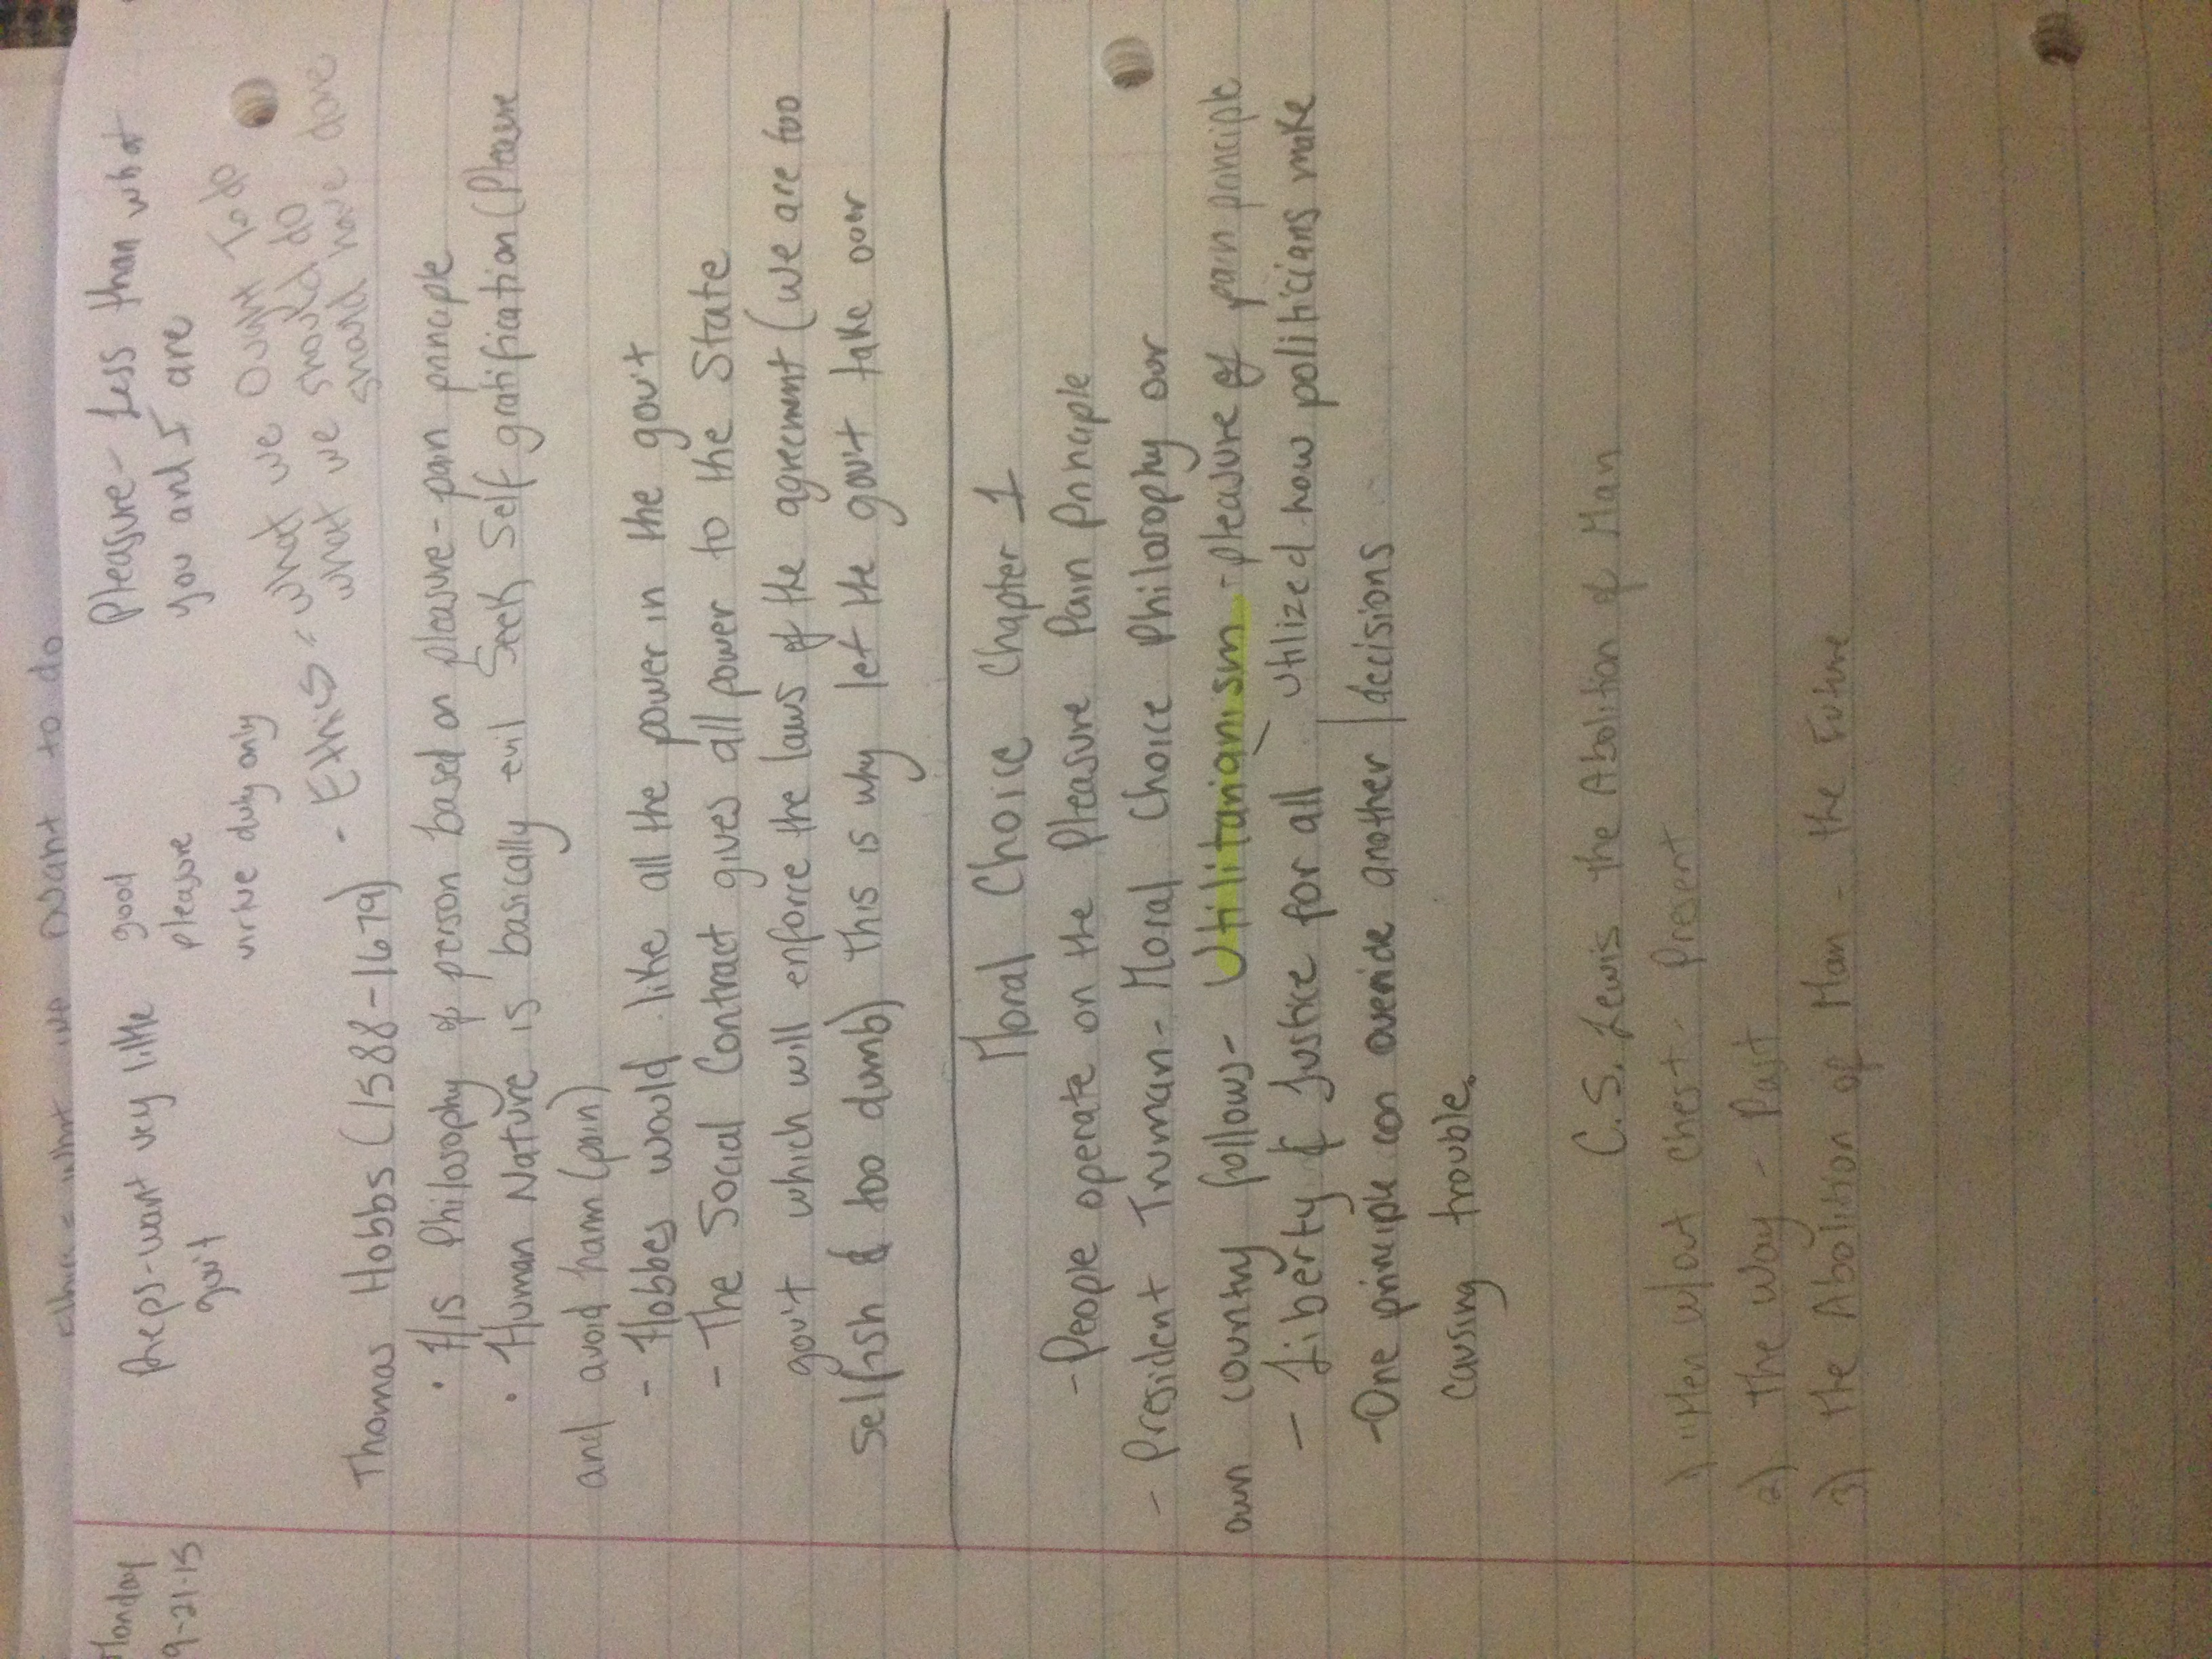 what we want to do
Monday
9-21-15
Preps-want very little
gov't
good
pleasure
virtue duty only
Pleasure- Less than what
you and I are
- Ethics = what we Ought To do
what we should do
should have done
Thomas Hobbs (1588-1679)
· His Philosophy of person based on pleasure-pain principle
· Human Nature is basically evil Seek Self gratification (Pleasure
and avoid harm (pain)
- Hobbes would like all the power in the gov't
- The Social Contract gives all power to the State
gov't which will enforce the laws of the agreement (we are too
selfish & too dumb) this is why let the gov't take over
Moral Choice Chapter 1
- People operate on the Pleasure Pain Principle
- President Truman- Moral Choice Philosophy our
own country follows- Utilitarianism - pleasure of pain principle
- Liberty & Justice for all utilized how politicians make
- One principle can override another decisions
causing trouble.
C.S. Lewis the Abolition of Man
1) Men w/out chest- Present
2) the way - Past
3) the Abolition of Man - the Future